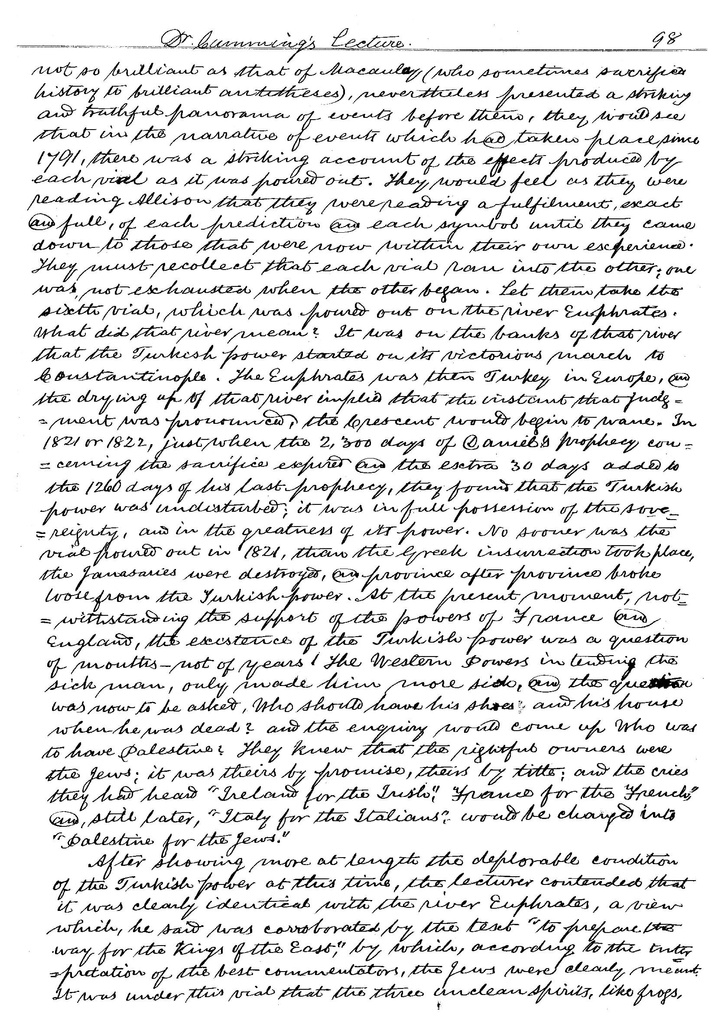 Dr. Cumming's Lecture. 98
not so brilliant as that of Macaulay (who sometimes sacrifices
history to brilliant antitheses), nevertheless presented a striking
and truthful panorama of events before them, they would see
that in the narrative of events which had taken place since
1791, there was a striking account of the effects produced by
each vial as it was poured out. They would feel as they were
reading Allison that they were reading a fulfilment, exact
and full, of each prediction and each symbol until they came
down to those that were now within their own experience.
They must recollect that each vial ran into the other; one
was not exhausted when the other began. Let them take the
sixth vial, which was poured out on the river Euphrates.
What did that river mean? It was on the banks of that river
that the Turkish power started on its victorious march to
Constantinople. The Euphrates was then Turkey in Europe, and
the drying up of that river implied that the instant that judg=
=ment was pronounced, the Crescent would begin to wane. In
1821 or 1822, just when the 2,300 days of Daniel's prophecy con=
=cerning the sacrifice expired and the extra 30 days added to
the 1260 days of his last prophecy, they found that the Turkish
power was undisturbed; it was in full possession of the sove=
=reignty, and in the greatness of its power. No sooner was the
vial poured out in 1821, than the Greek insurrection took place,
the Janasaries were destroyed, and province after province broke
loose from the Turkish power. At the present moment, not=
=withstanding the support of the powers of France and
England, the existence of the Turkish power was a question
of months – not of years! The Western Powers in tending the
sick man, only made him more sick, and the question
was now to be asked, Who should have his shoes? and his house
when he was dead? and the enquiry would come up Who was
to have Palestine? They knew that the rightful owners were
the Jews; it was theirs by promise, theirs by title; and the cries
they had heard "Ireland for the Irish", "France for the French,"
and, still later, "Italy for the Italians", would be changed into
"Palestine for the Jews."
After showing more at length the deplorable condition
of the Turkish power at this time, the lecturer contended that
it was clearly identical with the river Euphrates, a view
which, he said was corroborated by the text "to prepare the
way for the Kings of the East," by which, according to the inter
=pretation of the best commentators, the Jews were clearly meant.
It was under this vial that the three unclean spirits, like frogs,